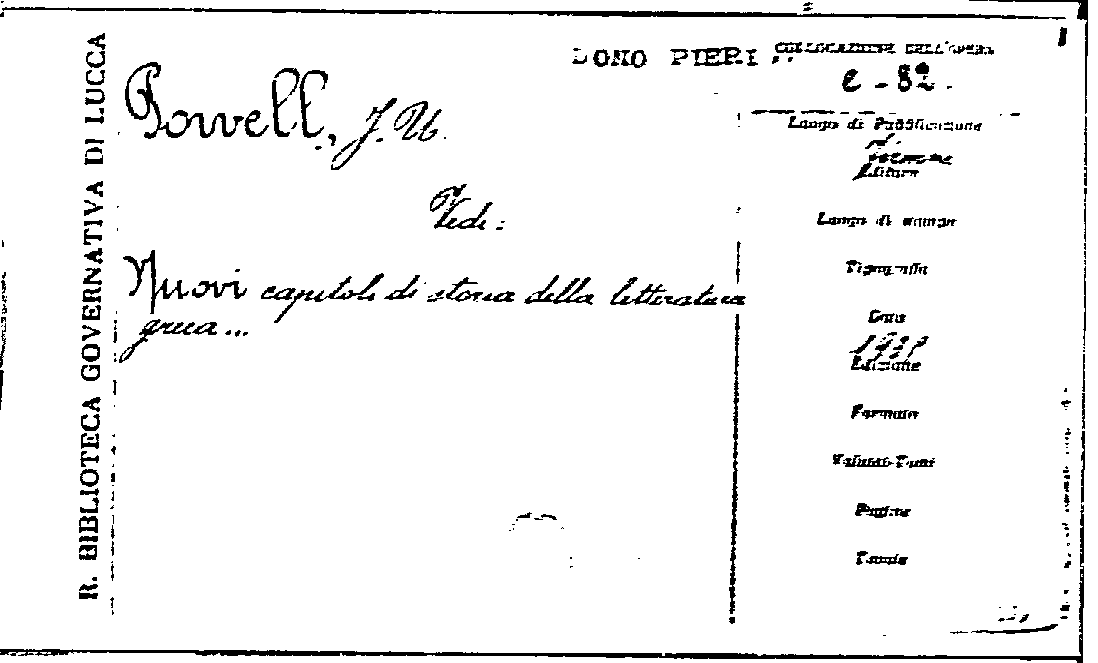 R. BIBLIOTECA GOVERNATIVA DI LUCCA
DONO PIERI
COLLOCAZIONE DELL'OPERA
C - 82.
Powell, J. U.
Vedi:
Nuovi capitoli di storia della letteratura
greca...
Luogo di Pubblicazione
Editore
Luogo di stampa
Tipografia
Data
Edizione
Formato
Volumi-Tomi
Pagine
Tavole